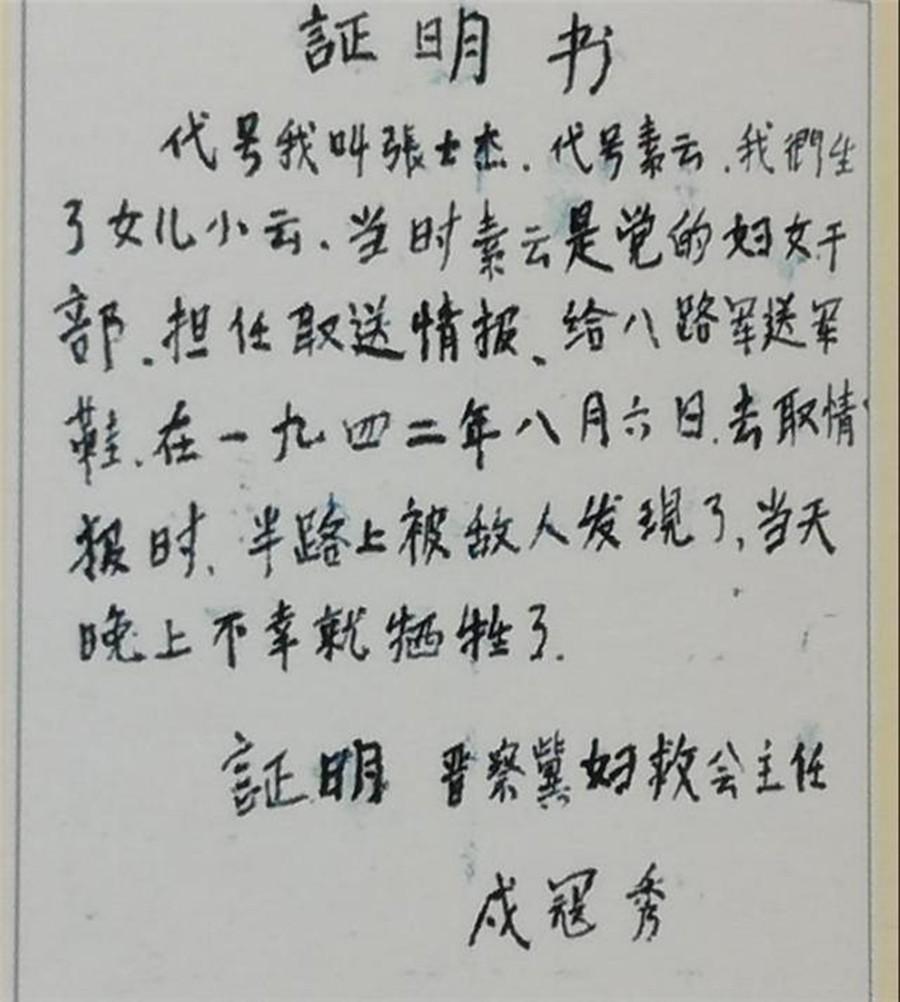 証明书
代号我叫張士杰．代号素云．我們生
了女儿小云．当时素云是党的妇女干
部．担任取送情报、给八路军送军
鞋．在一九四二年八月六日．去取情
报时．半路上被敌人发現了，当天
晚上不幸就牺牲了．
証明 晋察冀妇救会主任
戎冠秀